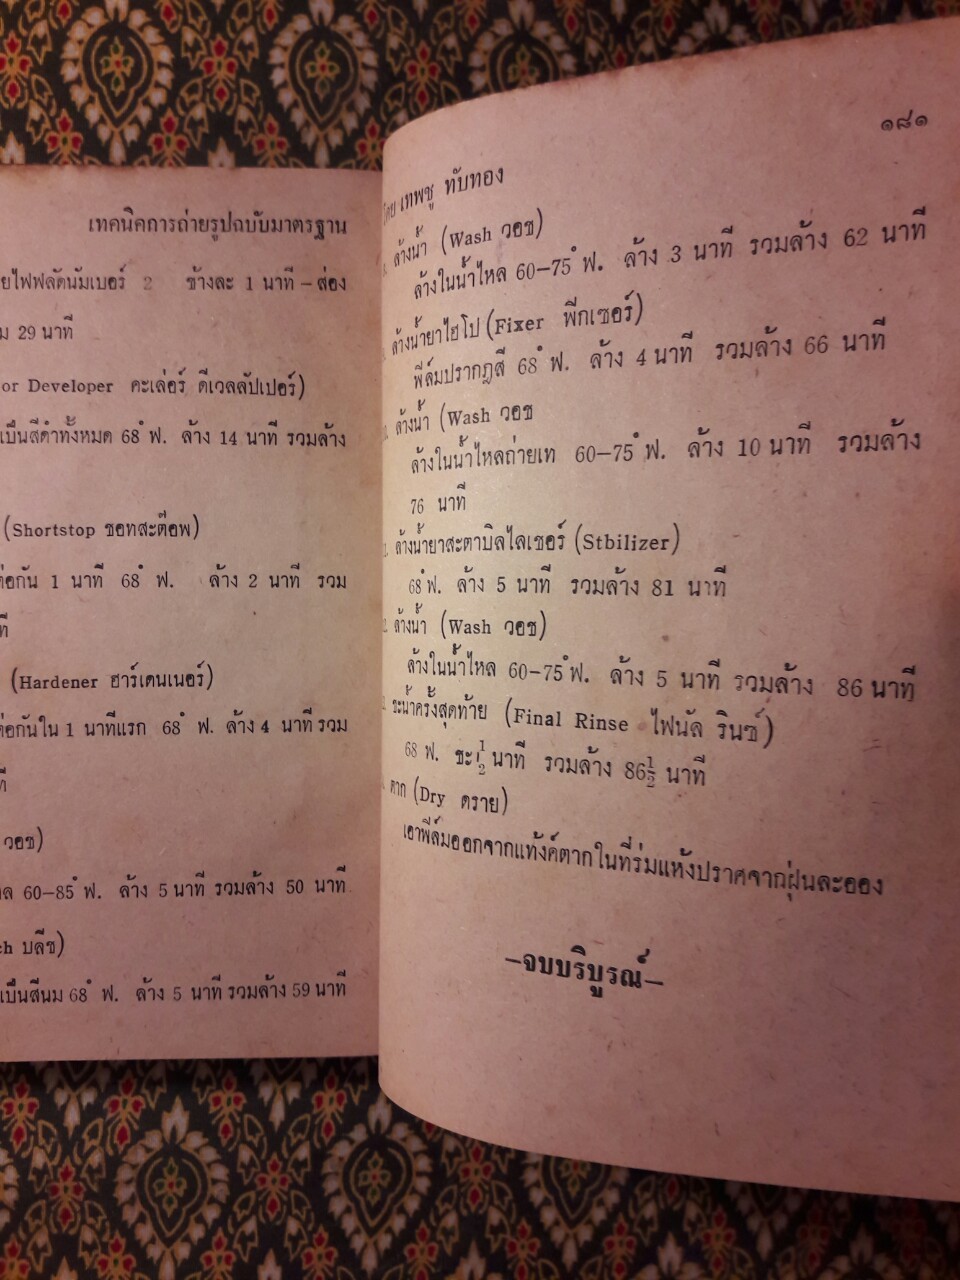 เทคนิคการถ่ายรูปฉบับมาตรฐาน
ยไฟฟลัดนัมเบอร์ 2 ข้างละ 1 นาที – ส่อง
ม 29 นาที
or Developer คะเล่อร์ ดีเวลลัปเปอร์)
เป็นสีดำทั้งหมด 68 ํ ฟ. ล้าง 14 นาที รวมล้าง
(Shortstop ชอทสะต๊อพ)
ต่อกัน 1 นาที 68 ํ ฟ. ล้าง 2 นาที รวม
ที
(Hardener ฮาร์เดนเนอร์)
ต่อกันใน 1 นาทีแรก 68 ํ ฟ. ล้าง 4 นาที รวม
ที
วอช)
ล 60–85 ํ ฟ. ล้าง 5 นาที รวมล้าง 50 นาที
ch บลีช)
เป็นสีนม 68 ํ ฟ. ล้าง 5 นาที รวมล้าง 59 นาที
๑๘๑
โดย เทพชู ทับทอง
ล้างน้ำ (Wash วอช)
ล้างในน้ำไหล 60–75 ํ ฟ. ล้าง 3 นาที รวมล้าง 62 นาที
ล้างน้ำยาไฮโป (Fixer ฟีกเซอร์)
ฟิล์มปรากฎสี 68 ํ ฟ. ล้าง 4 นาที รวมล้าง 66 นาที
ล้างน้ำ (Wash วอช
ล้างในน้ำไหลถ่ายเท 60–75 ํ ฟ. ล้าง 10 นาที รวมล้าง
76 นาที
ล้างน้ำยาสะตาบิลไลเซอร์ (Stbilizer)
68 ํ ฟ. ล้าง 5 นาที รวมล้าง 81 นาที
ล้างน้ำ (Wash วอช)
ล้างในน้ำไหล 60–75 ํ ฟ. ล้าง 5 นาที รวมล้าง 86 นาที
ชะน้ำครั้งสุดท้าย (Final Rinse ไฟนัล รินซ์)
68 ฟ. ชะ ½ นาที รวมล้าง 86½ นาที
ตาก (Dry ดราย)
เอาฟิล์มออกจากแท้งค์ตากในที่ร่มแห้งปราศจากฝุ่นละออง
–จบบริบูรณ์–